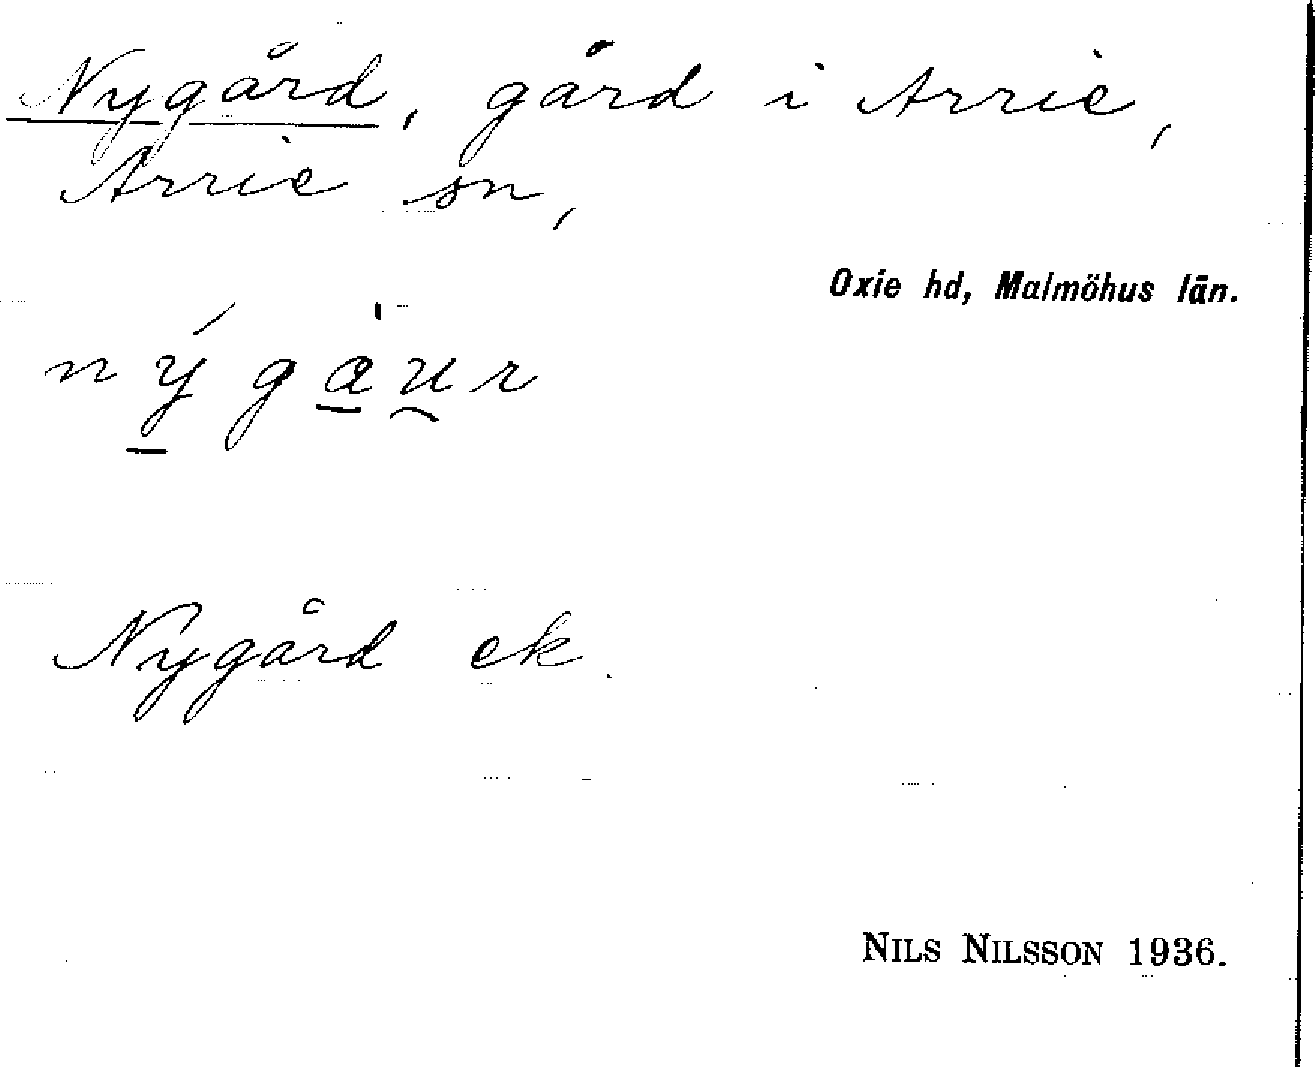 Nygård, gård i Arrie,
Arrie sn,
Oxie hd, Malmöhus län.
ný̠ ga̠̍u̯r
Nygård ek.
NILS NILSSON 1936.